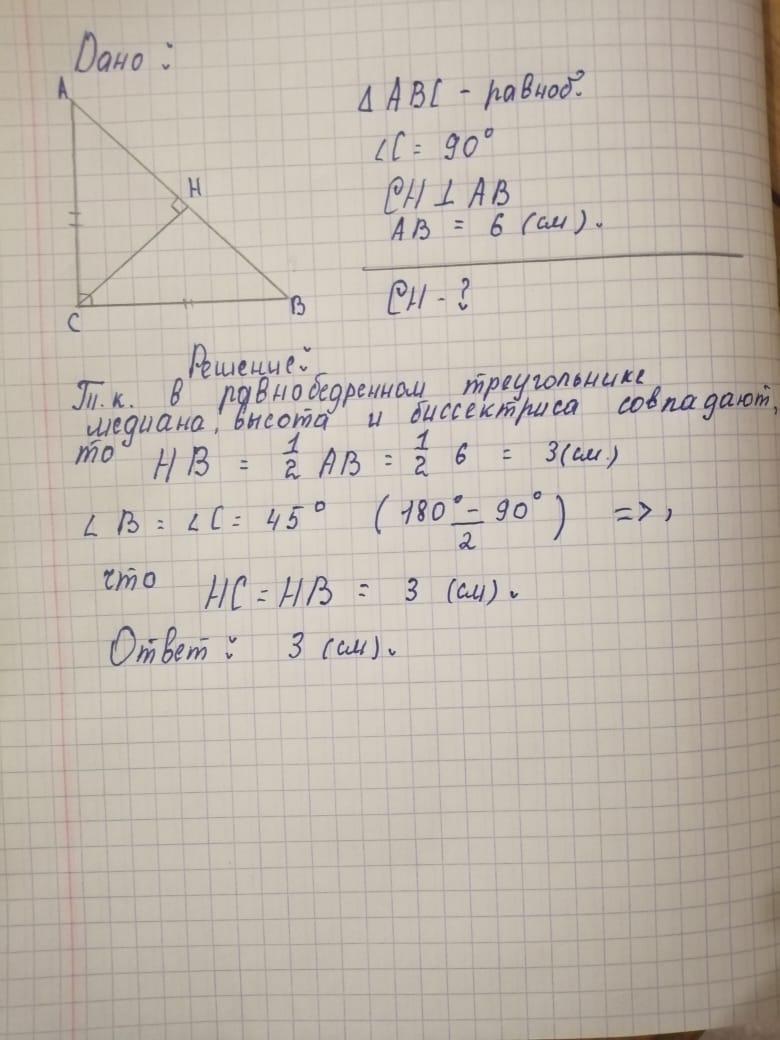 Дано:
A
H
C
B
Δ ABC - равноб.
∠C = 90°
CH ⊥ AB
AB = 6 (см).
CH - ?
Решение:
Т.к. в равнобедренном треугольнике
медиана, высота и биссектриса совпадают,
то HB = 1/2 AB = 1/2 6 = 3(см.)
∠B = ∠C = 45° (180° - 90° / 2) =>,
что HC = HB = 3 (см).
Ответ: 3 (см).